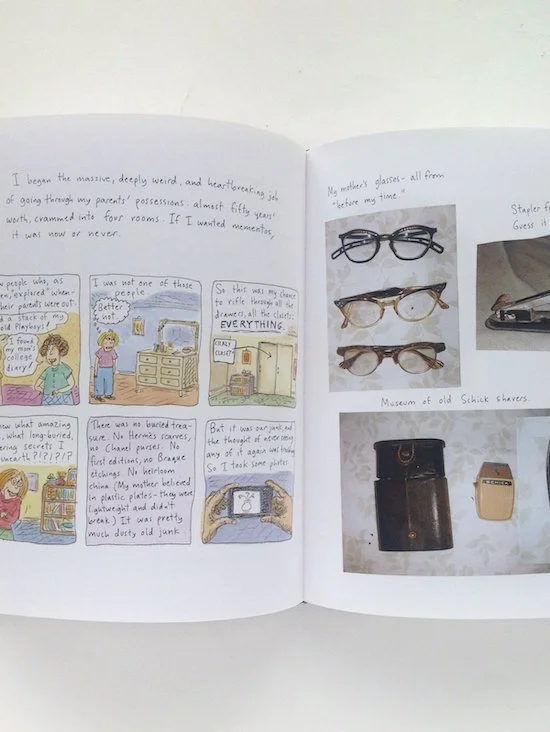 I began the massive, deeply weird, and heartbreaking job
of going through my parents' possessions: almost fifty years'
worth, crammed into four rooms. If I wanted mementos,
it was now or never.
people who, as
explored" when-
their parents were out.
a stack of my
old Playboys!
I found
my mom's
college
diary!
I was not one of those
people.
Better
not.
So this was my chance
to rifle through all the
drawers, all the closets:
EVERYTHING.
CRAZY
CLOSET
what amazing
what long-buried,
secrets I
unearth?!?!?!?
There was no buried trea-
sure. No Hermès scarves,
no Chanel purses. No
first editions, no Braque
etchings. No heirloom
china. (My mother believed
in plastic plates - they were
lightweight and didn't
break.) It was pretty
much dusty old junk.
But it was our junk, and
the thought of never seeing
any of it again was
So I took some photos.
My mother's glasses - all from
"before my time."
Stapler
Guess it
Museum of old Schick shavers.
SCHICK